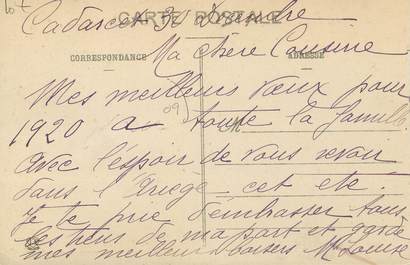 Cadarcet 30 Décembre
CARTE POSTALE
CORRESPONDANCE
ADRESSE
Ma chère Cousine
Mes meilleurs vœux pour
1920 a toute la famille
avec l'espoir de vous revoir
dans l'Ariège cet eté.
Je te prie d'embrasser tous
les tiens de ma part et garde
mes meilleurs baisers Mse Louise